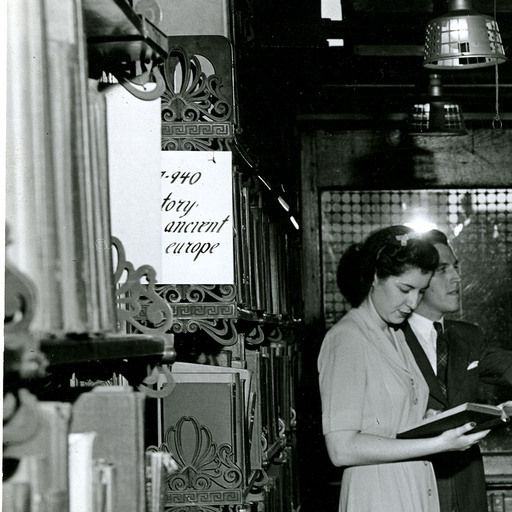 -940
tory
ancient
europe